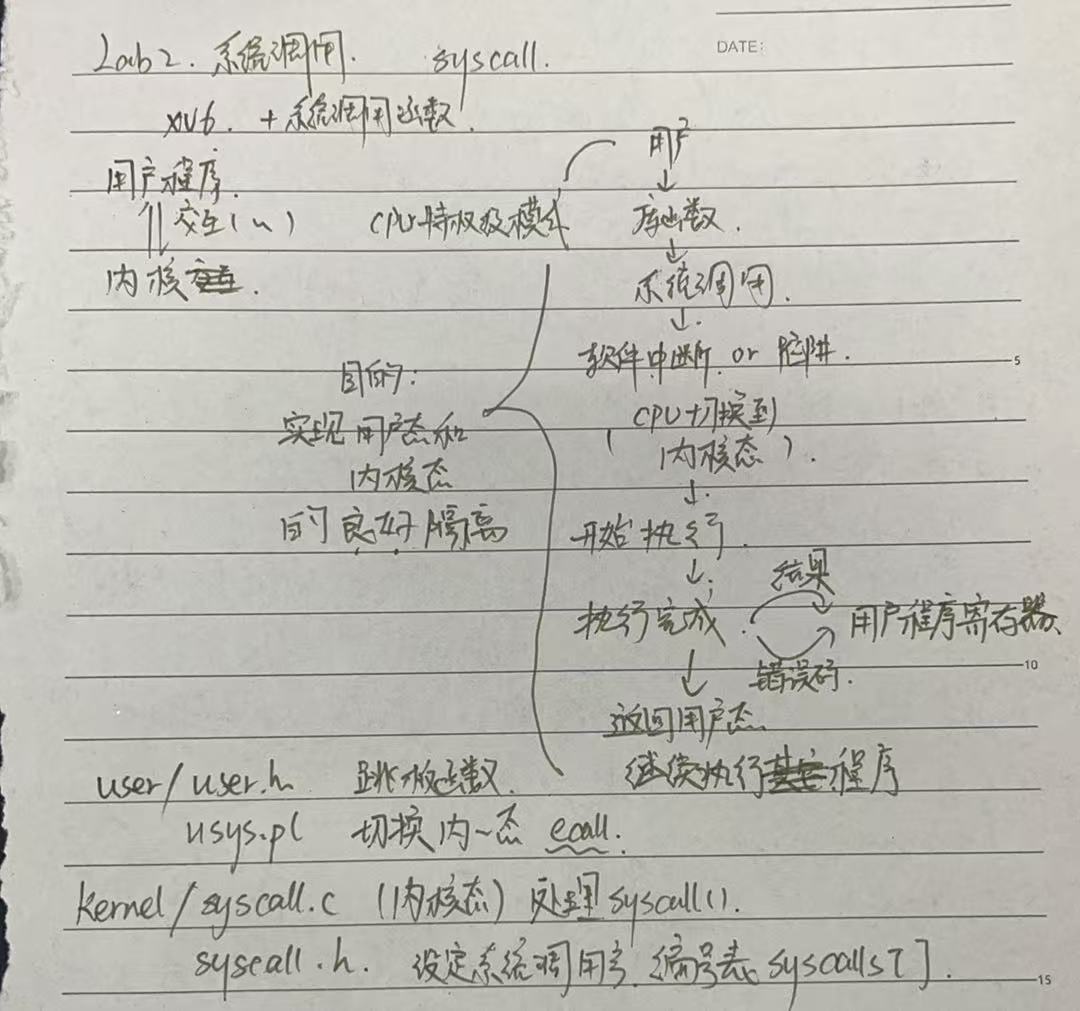 Lab2. 系统调用. syscall.
DATE:
xv6. + 系统调用函数.
用户程序.
交互(~)
内核
CPU特权级模式
用户
库函数.
系统调用.
软件中断 or 陷阱.
(CPU切换到
内核态).
开始执行.
执行完成.
结果
错误码.
用户程序寄存器
返回用户态
继续执行程序
目的:
实现用户态和
内核态
的良好隔离
5
10
user/user.h 跳板函数.
usys.pl 切换内~态 ecall.
kernel/syscall.c (内核态) 处理syscall().
syscall.h. 设定系统调用号. 编号表 syscalls[].
15